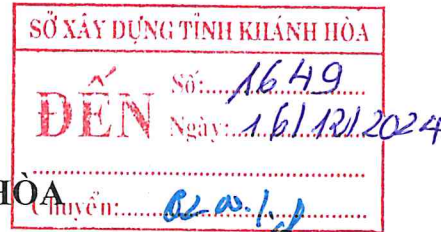 SỞ XÂY DỰNG TỈNH KHÁNH HÒA
ĐẾN
Số: 1649
Ngày: 16/12/2024
HÒA
Chuyển: